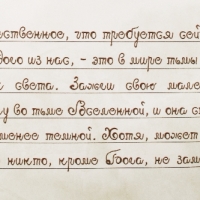 ственное, что требуется сей
дого из нас, – это в мире тьмы
света. Зажги свою мале
у во тьме Вселенной, и она с
менее темной. Хотя, может
никто, кроме Бога, не зам